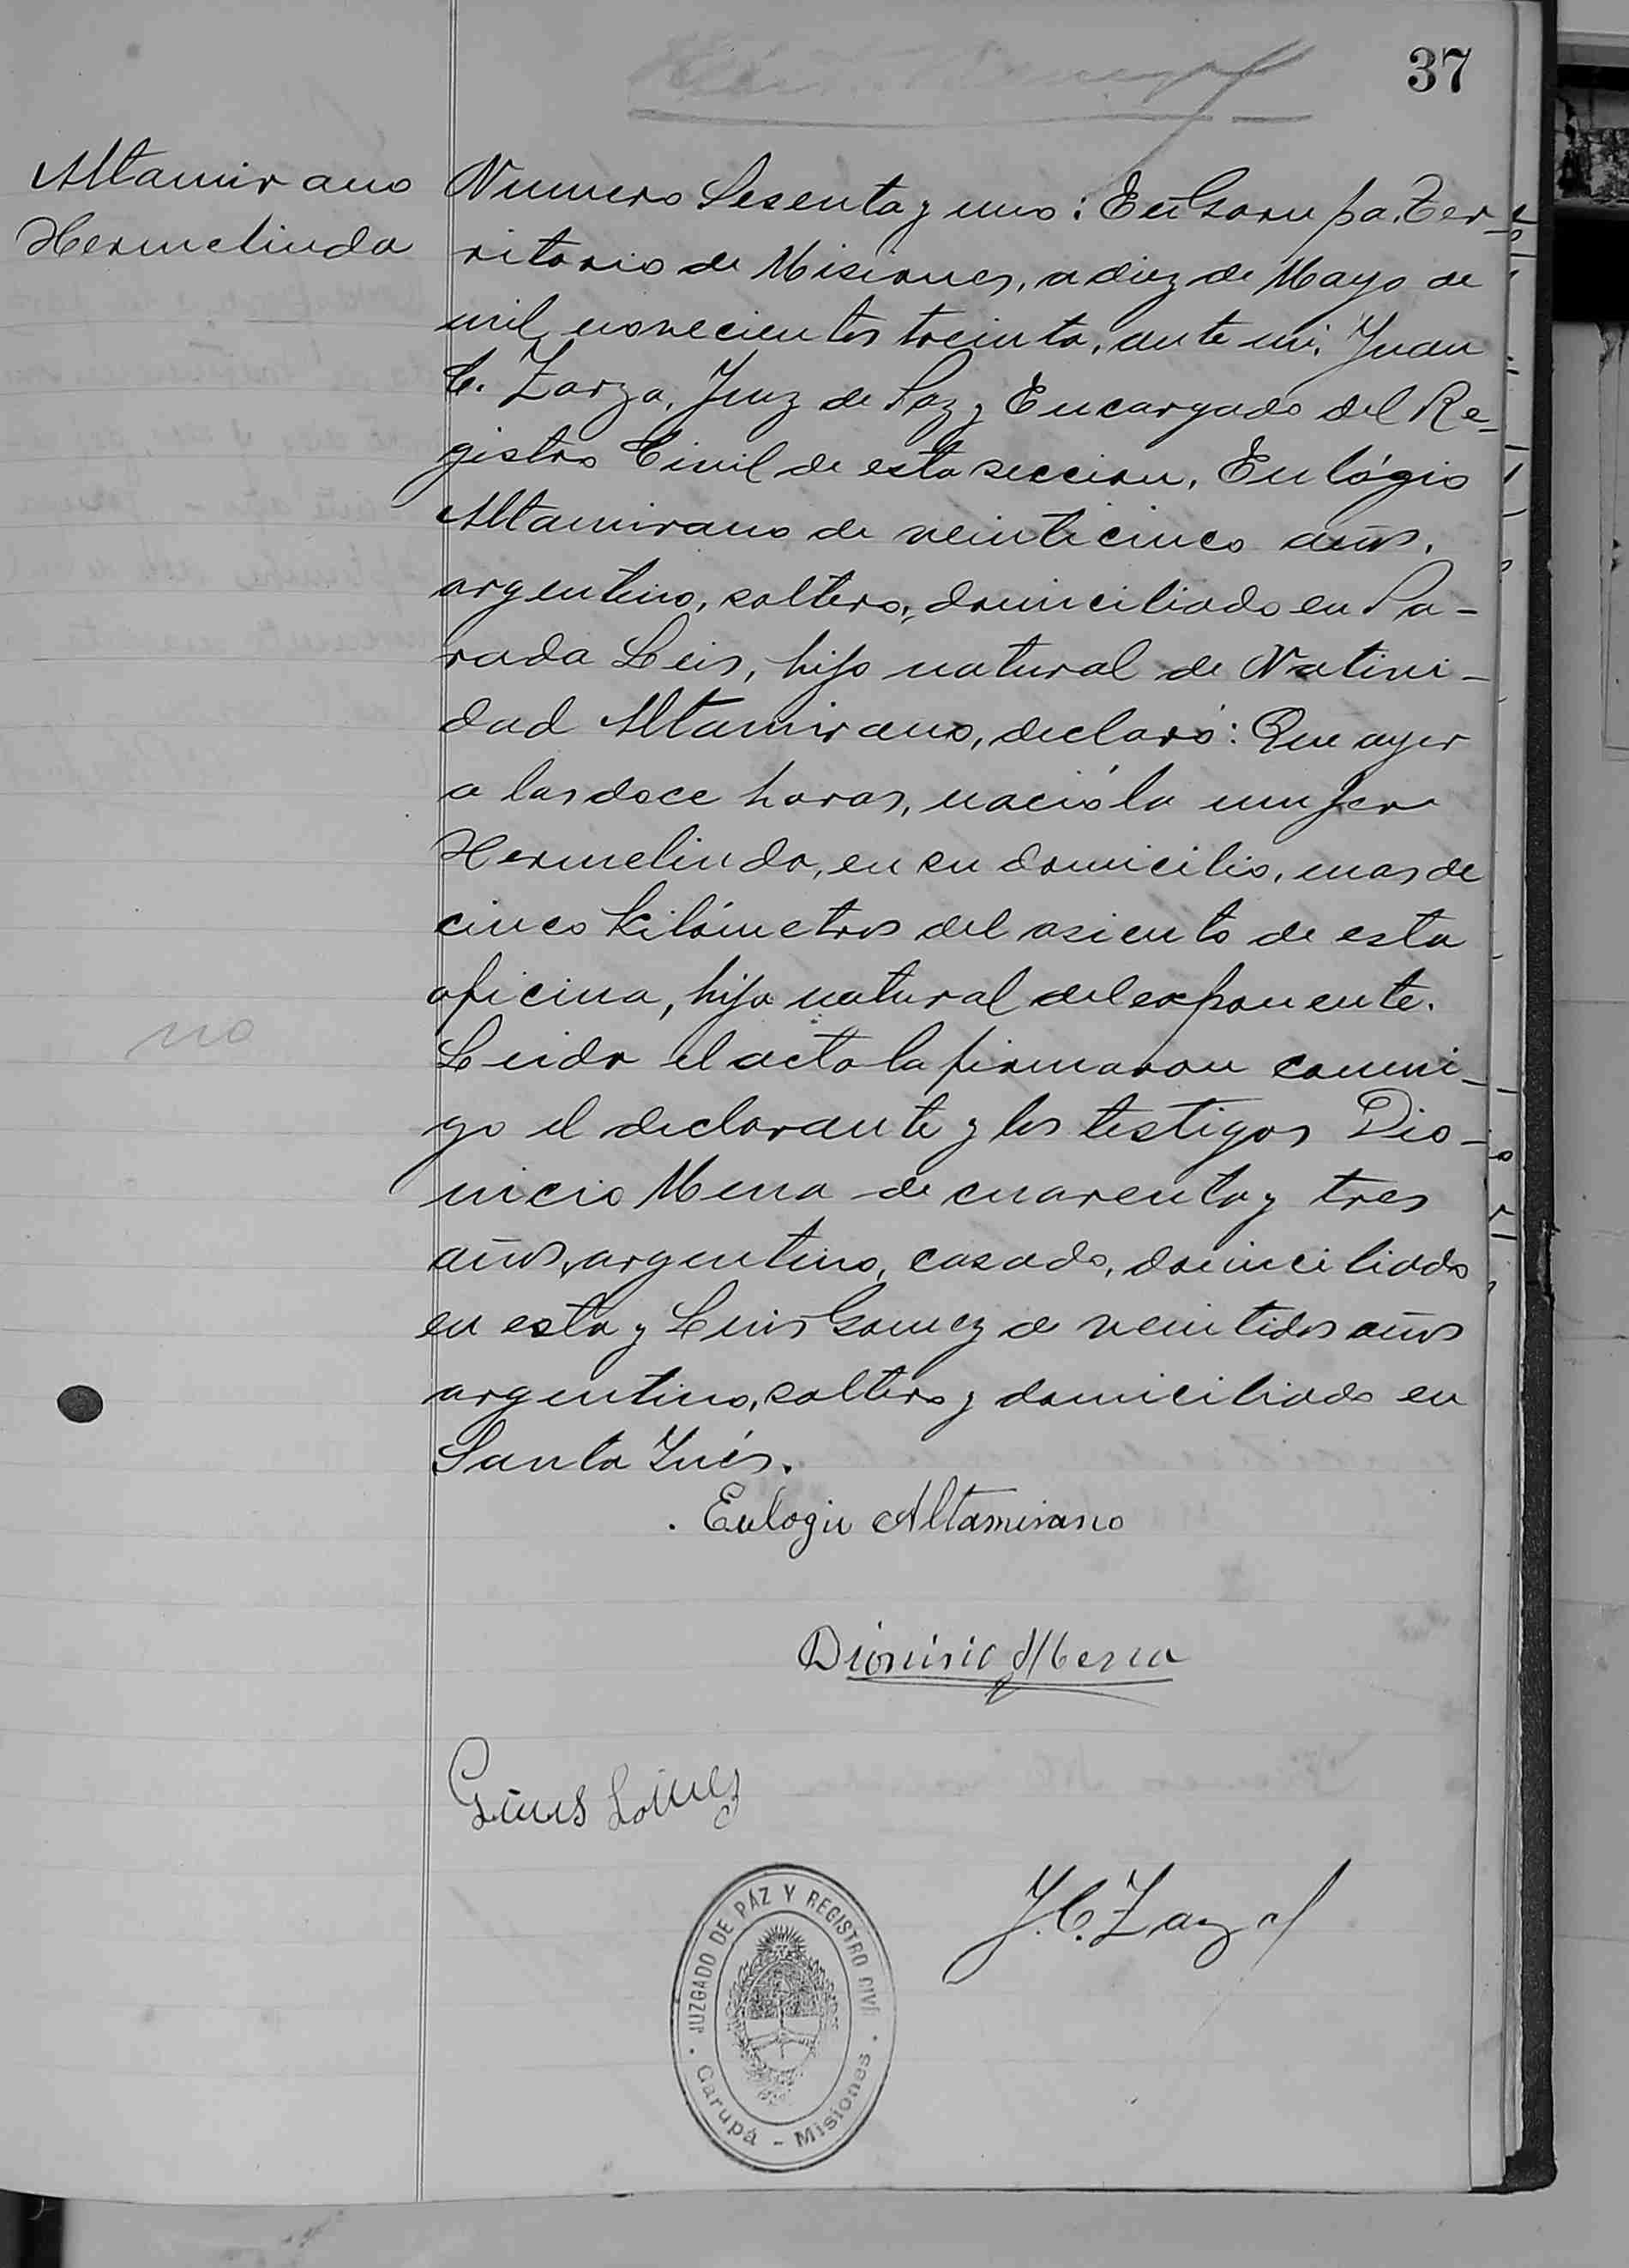 37
Altamirano
Hermelinda
Numero Sesenta y uno: En Garupa, Ter-
ritorio de Misiones, a diez de Mayo de
mil novecientos treinta, ante mi, Juan
C. Zarza, Juez de Paz y Encargado del Re-
gistro Civil de esta seccion, Eulógio
Altamirano de veinticinco años,
argentino, soltero, domiciliado en Pa-
rada Leis, hijo natural de Nativi-
dad Altamirano, declaró: Que ayer
a las doce horas, nació la mujer
Hermelinda, en su domicilio, mas de
cinco kilómetros del asiento de esta
oficina, hija natural del exponente.
Leida el acta la firmaron conmi-
go el declarante y los testigos Dio-
nicio Mena de cuarenta y tres
años, argentino, casado, domiciliado
en esta y Luis Gomez de veintidos años
argentino, soltero y domiciliado en
Santa Inés.
no
Eulogio Altamirano
Dionisio Mena
J.C. Zarza
JUZGADO DE PÁZ Y REGISTRO CIVIL
Garupá - Misiones